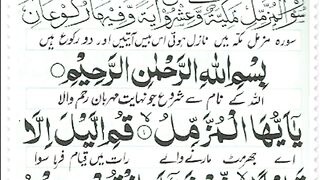 سُوْرَةُ الْمُزَّمِّلِ مَكِّيَّةٌ وَّ عِشْرُوْنَ اٰيَةً وَّ فِيْهَا رُكُوْعَانِ
سورہ مزمل مکہ میں نازل ہوئی اس میں بیس آیتیں اور دو رکوع ہیں
بِسْمِ اللهِ الرَّحْمٰنِ الرَّحِيْمِ
اللہ کے نام سے شروع جو نہایت مہربان رحم والا
يٰۤاَيُّهَا الْمُزَّمِّلُ ۝۱ قُمِ الَّيْلَ اِلَّا
اے جھرمٹ مارنے والے رات میں قیام فرما سوا